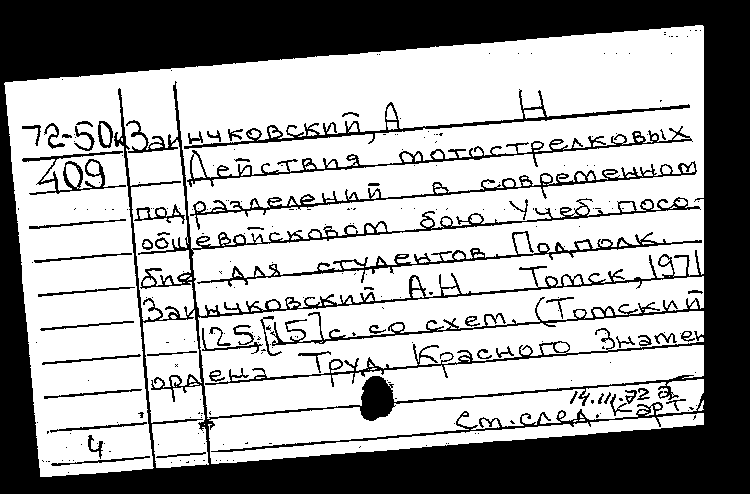 72-50к Заинчковский, А Н
409 Действия мотострелковых
подразделений в современном
общевойсковом бою. Учеб. посо-
бие для студентов. Подполк.
Заинчковский А.Н. Томск, 1971
125, [15] с. со схем. (Томский
ордена Труд. Красного Знамен
14.III.72
4 См. след. карт.